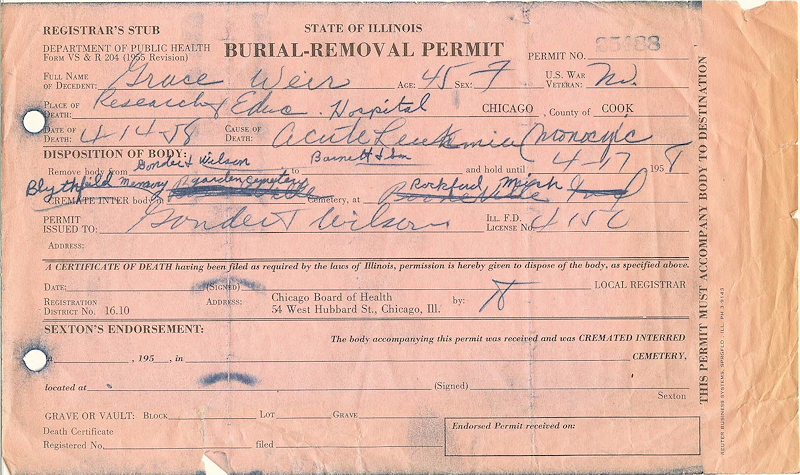 REGISTRAR'S STUB
STATE OF ILLINOIS
DEPARTMENT OF PUBLIC HEALTH
FORM VS & R 204 (1955 Revision)
BURIAL-REMOVAL PERMIT
PERMIT NO.
FULL NAME OF DECEDENT: Grace Weir AGE: 45 SEX: F U.S. WAR VETERAN: No.
PLACE OF DEATH: Research & Educ. Hospital CHICAGO, County of COOK
DATE OF DEATH: 4 14 58 CAUSE OF DEATH: Acute Leukemia (Monocytic
DISPOSITION OF BODY:
Remove body from Gonder & Wilson to Barnett & Son and hold until 4-17 1958
Blythfield memory garden cemetery Rockford Mich
CREMATE INTER body in Cemetery, at
PERMIT ISSUED TO: Gonder & Wilson ILL. F.D. LICENSE No. 4150
ADDRESS:
A CERTIFICATE OF DEATH having been filed as required by the laws of Illinois, permission is hereby given to dispose of the body, as specified above.
DATE: (SIGNED) LOCAL REGISTRAR
REGISTRATION DISTRICT No. 16.10 ADDRESS: Chicago Board of Health by:
54 West Hubbard St., Chicago, Ill.
SEXTON'S ENDORSEMENT:
The body accompanying this permit was received and was CREMATED INTERRED
, 195 , in CEMETERY,
located at (Signed)
Sexton
GRAVE OR VAULT: BLOCK LOT GRAVE
Death Certificate
Registered No. filed
Endorsed Permit received on:
THIS PERMIT MUST ACCOMPANY BODY TO DESTINATION
REUTER BUSINESS SYSTEMS, SPRGFLD., ILL.